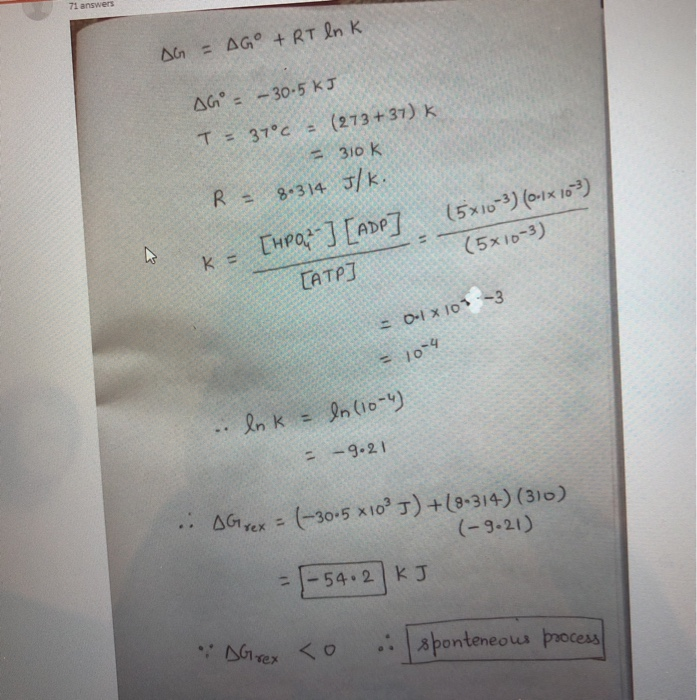 71 answers
ΔG = ΔG° + RT ln K
ΔG° = -30.5 KJ
T = 37°C = (273+37) K
= 310 K
R = 8.314 J/K.
K = [HPO₄²⁻] [ADP] / [ATP] = (5×10⁻³) (0.1×10⁻³) / (5×10⁻³)
= 0.1 × 10⁻³
= 10⁻⁴
∴ ln K = ln (10⁻⁴)
= -9.21
∴ ΔG rex = (-30.5 ×10³ J) + (8.314) (310)
(-9.21)
= -54.2 KJ
∵ ΔG rex < 0 ∴ sponteneous process